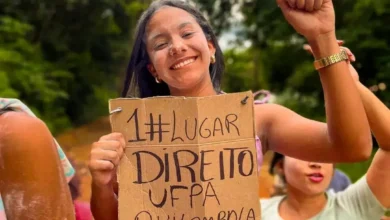 1#LUGAR
DIREITO
UFPA
QUILOMBOLA